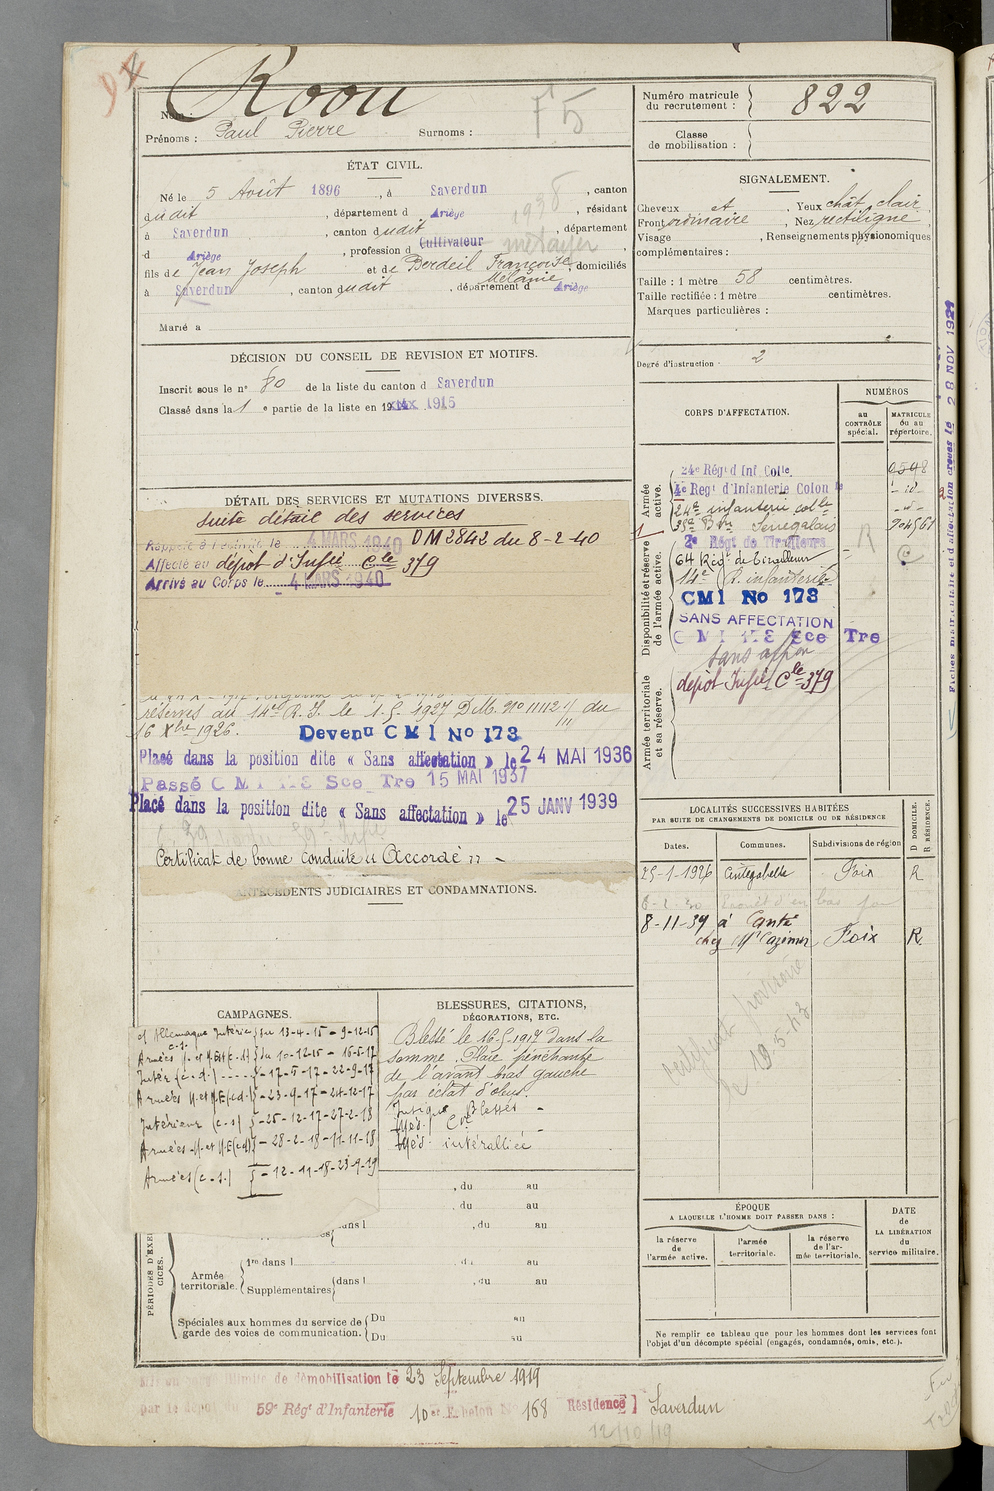 Roou
Nom :
Prénoms : Paul Pierre Surnoms :
Numéro matricule du recrutement : 822
Classe de mobilisation :
ÉTAT CIVIL.
Né le 5 Août 1896, à Saverdun, canton
dudit, département d Ariège, résidant
à Saverdun, canton dudit, département
d Ariège, profession de Cultivateur métayer
fils de Jean Joseph et de Berdeil Françoise Mélanie, domiciliés
à Saverdun, canton dudit, département d Ariège
Marié à
SIGNALEMENT.
Cheveux et, Yeux chât. clair,
Front ordinaire, Nez rectiligne
Visage, Renseignements physionomiques
complémentaires :
Taille : 1 mètre 58 centimètres.
Taille rectifiée : 1 mètre centimètres.
Marques particulières :
Degré d'instruction : 2
DÉCISION DU CONSEIL DE REVISION ET MOTIFS.
Inscrit sous le n° 80 de la liste du canton d Saverdun
Classé dans la 1e partie de la liste en 1915
DÉTAIL DES SERVICES ET MUTATIONS DIVERSES.
suite détail des services
Rappelé à l'activité le 4 MARS 1940 DM 2842 du 8-2-40
Affecté au dépôt d'Infie Cle 379
Arrivé au Corps le 4 MARS 1940
réserves au 14e R.I. le 1-5-1927 D.M. N° 11112 1/11 du
16 Xbre 1926.
Devenu C M I No 173
Placé dans la position dite « Sans affectation » le 24 MAI 1936
Passé C M I 173 Sce Tre 15 MAI 1937
Placé dans la position dite « Sans affectation » le 25 JANV 1939
Certificat de bonne conduite « Accordé »
ANTÉCÉDENTS JUDICIAIRES ET CONDAMNATIONS.
CORPS D'AFFECTATION.
NUMÉROS
au CONTRÔLE spécial.
MATRICULE ou au répertoire.
Armée active.
24e Régt d'Inf. Colle.
4e Regt d'Infanterie Colon
24e infanterie colle
Bon Sénégalais
Disponibilité et réserve de l'armée active.
2e Régt de Tirailleurs
64 Régt de tirailleurs
14e R. infanterie
CMI No 173
SANS AFFECTATION
C M I 173 Sce Tre
Sans affon
Armée territoriale et sa réserve.
dépôt Infie Cle 379
Fiches matriculaire et d'affectation créées le 28 NOV 1921
LOCALITÉS SUCCESSIVES HABITÉES
PAR SUITE DE CHANGEMENTS DE DOMICILE OU DE RÉSIDENCE
Dates. Communes. Subdivisions de région
D DOMICILE. R RÉSIDENCE.
25-1-1926 Cintegabelle Foix R
8-11-39 à Canté
chez Mr Cazimir Foix R
certificat provisoire
le 19-5-43
CAMPAGNES.
ct Allemagne Intérieur c.s. du 13-4-15 - 9-12-15
Armées du 10-12-15 - 16-5-17
Intér (c-d.) - 17-5-17 - 22-9-17
Armées - 23-9-17 - 24-12-17
Intérieur (c-s) - 25-12-17 - 27-2-18
Armées - 28-2-18 - 11-11-18
Armées (c-s.) - 12-11-18 - 23-9-19
BLESSURES, CITATIONS, DÉCORATIONS, ETC.
Blessé le 16-5-1917 dans la
Somme. Plaie pénétrante
de l'avant bras gauche
par éclat d'obus.
Insigne Blessés
Med. Cve
Med. interalliée
, du au
, du au
dans l , du au
PÉRIODES D'EXERCICES.
Armée territoriale.
1re dans l du au
Supplémentaires dans l , du au
Spéciales aux hommes du service de garde des voies de communication. Du au
Du au
ÉPOQUE
A LAQUELLE L'HOMME DOIT PASSER DANS :
la réserve de l'armée active.
l'armée territoriale.
la réserve de l'armée territoriale.
DATE de LA LIBÉRATION du service militaire.
Ne remplir ce tableau que pour les hommes dont les services font
l'objet d'un décompte spécial (engagés, condamnés, omis, etc.).
Mis en congé illimité de démobilisation le 23 Septembre 1919
par le dépôt du 59e Régt d'Infanterie 10e Echelon N° 168 Résidence Saverdun
12/10/19